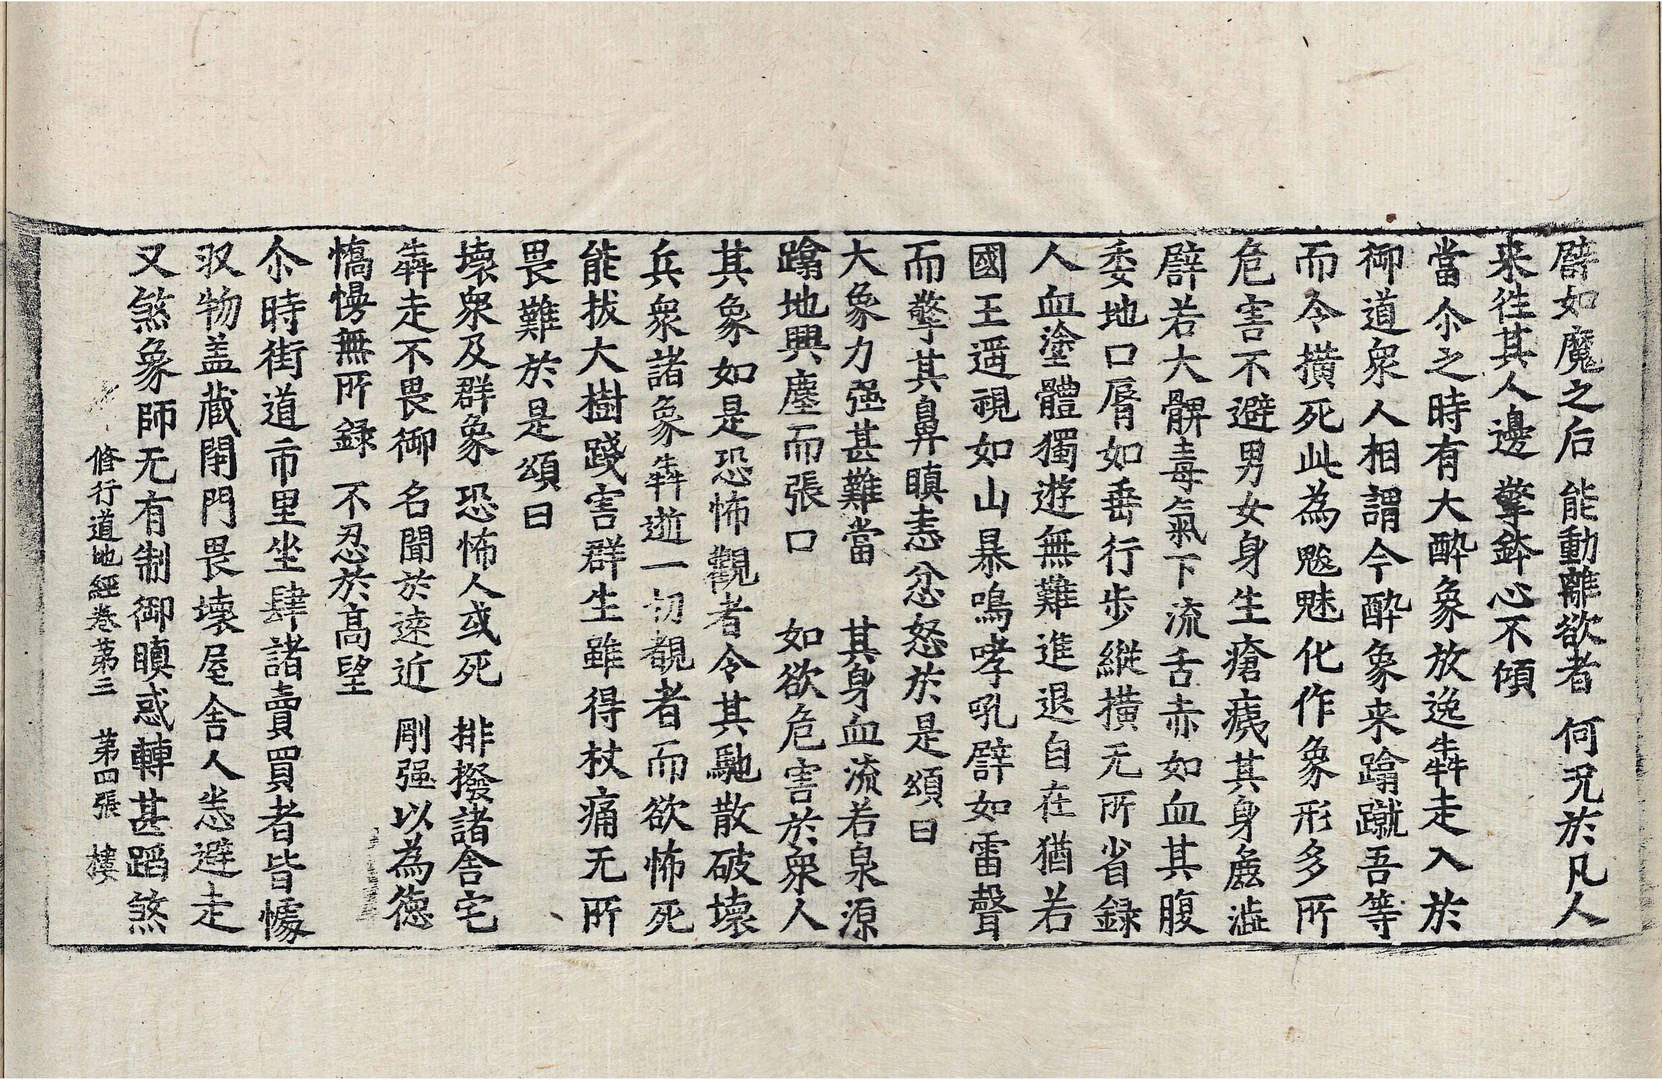 譬如魔之后 能動離欲者 何況於凡人
来往其人邊 擎鉢心不傾
當尒之時有大醉象放逸犇走入於
御道衆人相謂今醉象来蹹蹴吾等
而令橫死此為魃魅化作象形多所
危害不避男女身生瘡痍其身麁澁
譬若大髀毒氣下流舌赤如血其腹
委地口脣如垂行步縱橫无所省録
人血塗體獨遊無難進退自在猶若
國王遥視如山暴鳴哮吼譬如雷聲
而擎其鼻瞋恚忿怒於是頌曰
大象力强甚難當 其身血流若泉源
蹹地興塵而張口 如欲危害於衆人
其象如是恐怖觀者令其馳散破壞
兵衆諸象犇逝一切覩者而欲怖死
能拔大樹踐害群生雖得杖痛无所
畏難於是頌曰
壞衆及群象 恐怖人或死 排撥諸舍宅
犇走不畏御 名聞於遠近 剛强以為德
憍慢無所録 不忍於高望
尒時街道市里坐肆諸賣買者皆懅
収物盖藏閇門畏壞屋舍人悉避走
又煞象師无有制御瞋惑轉甚蹈煞
修行道地經卷苐三 苐四張 樓